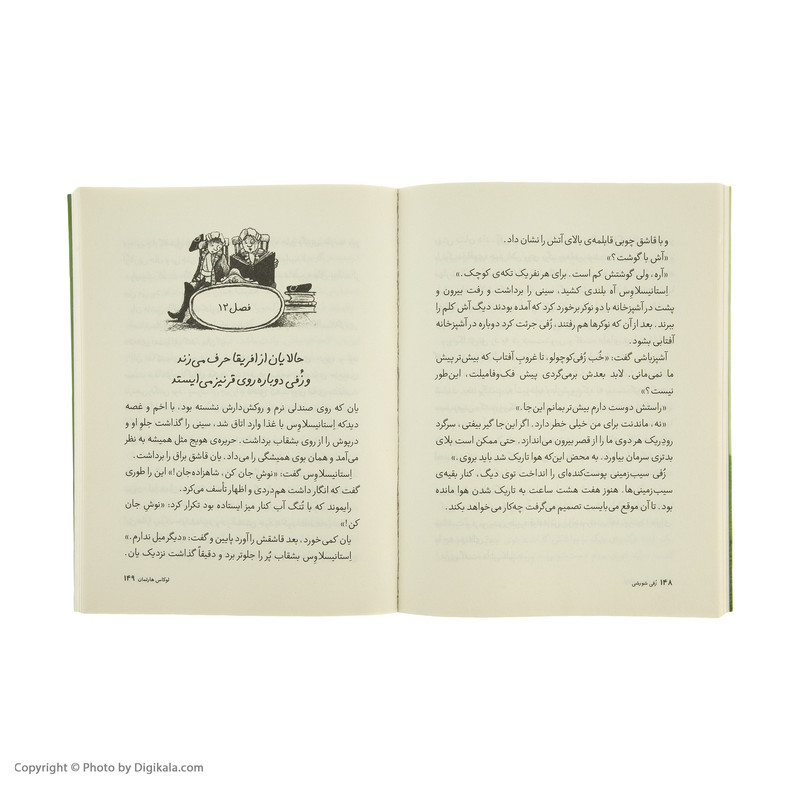 و با قاشق چوبی قابلمه‌ی بالای آتش را نشان داد.
«آش با گوشت؟»
«آره، ولی گوشتش کم است. برای هر نفر یک تکه‌ی کوچک.»
اِستانیسلاوس آه بلندی کشید، سینی را برداشت و رفت بیرون و
پشت در آشپزخانه با دو نوکر برخورد کرد که آمده بودند دیگ آش کلم را
ببرند. بعد از آن که نوکرها هم رفتند، رُفی جرئت کرد دوباره در آشپزخانه
آفتابی بشود.
آشپزباشی گفت: «خُب رُفی‌کوچولو، تا غروبِ آفتاب که بیش‌تر پیش
ما نمی‌مانی. لابد بعدش برمی‌گردی پیش فک‌وفامیلت، این‌طور
نیست؟»
«راستش دوست دارم بیش‌تر بمانم این‌جا.»
«نه، ماندنت برای من خیلی خطر دارد. اگر این‌جا گیر بیفتی، سرگرد
رودریک هر دوی ما را از قصر بیرون می‌اندازد. حتی ممکن است بلای
بدتری سرمان بیاورد. به محض این‌که هوا تاریک شد باید بروی.»
رُفی سیب‌زمینی پوست‌کنده‌ای را انداخت توی دیگ، کنار بقیه‌ی
سیب‌زمینی‌ها. هنوز هفت هشت ساعت به تاریک شدن هوا مانده
بود. تا آن موقع می‌بایست تصمیم می‌گرفت چه‌کار می‌خواهد بکند.
۱۴۸ رُفی شورشی
فصل ۱۲
حالا یان از افریقا حرف می‌زند
و رُفی دوباره روی قرنیز می‌ایستد
یان که روی صندلی نرم و روکش‌دارش نشسته بود، با اخم و غصه
دید که اِستانیسلاوس با غذا وارد اتاق شد، سینی را گذاشت جلوِ او و
درپوش را از روی بشقاب برداشت. حریره‌ی هویج مثل همیشه به نظر
می‌آمد و همان بوی همیشگی را می‌داد. یان قاشق براق را برداشت.
اِستانیسلاوس گفت: «نوشِ جان کن، شاهزاده‌جان!» این را طوری
گفت که انگار داشت هم‌دردی و اظهار تأسف می‌کرد.
رایموند که با تُنگ آب کنار میز ایستاده بود تکرار کرد: «نوشِ جان
کن!»
یان کمی خورد، بعد قاشقش را آورد پایین و گفت: «دیگر میل ندارم.»
اِستانیسلاوس بشقاب پُر را جلوتر برد و دقیقاً گذاشت نزدیک یان.
لوکاس هارتمان ۱۴۹
Copyright © Photo by Digikala.com